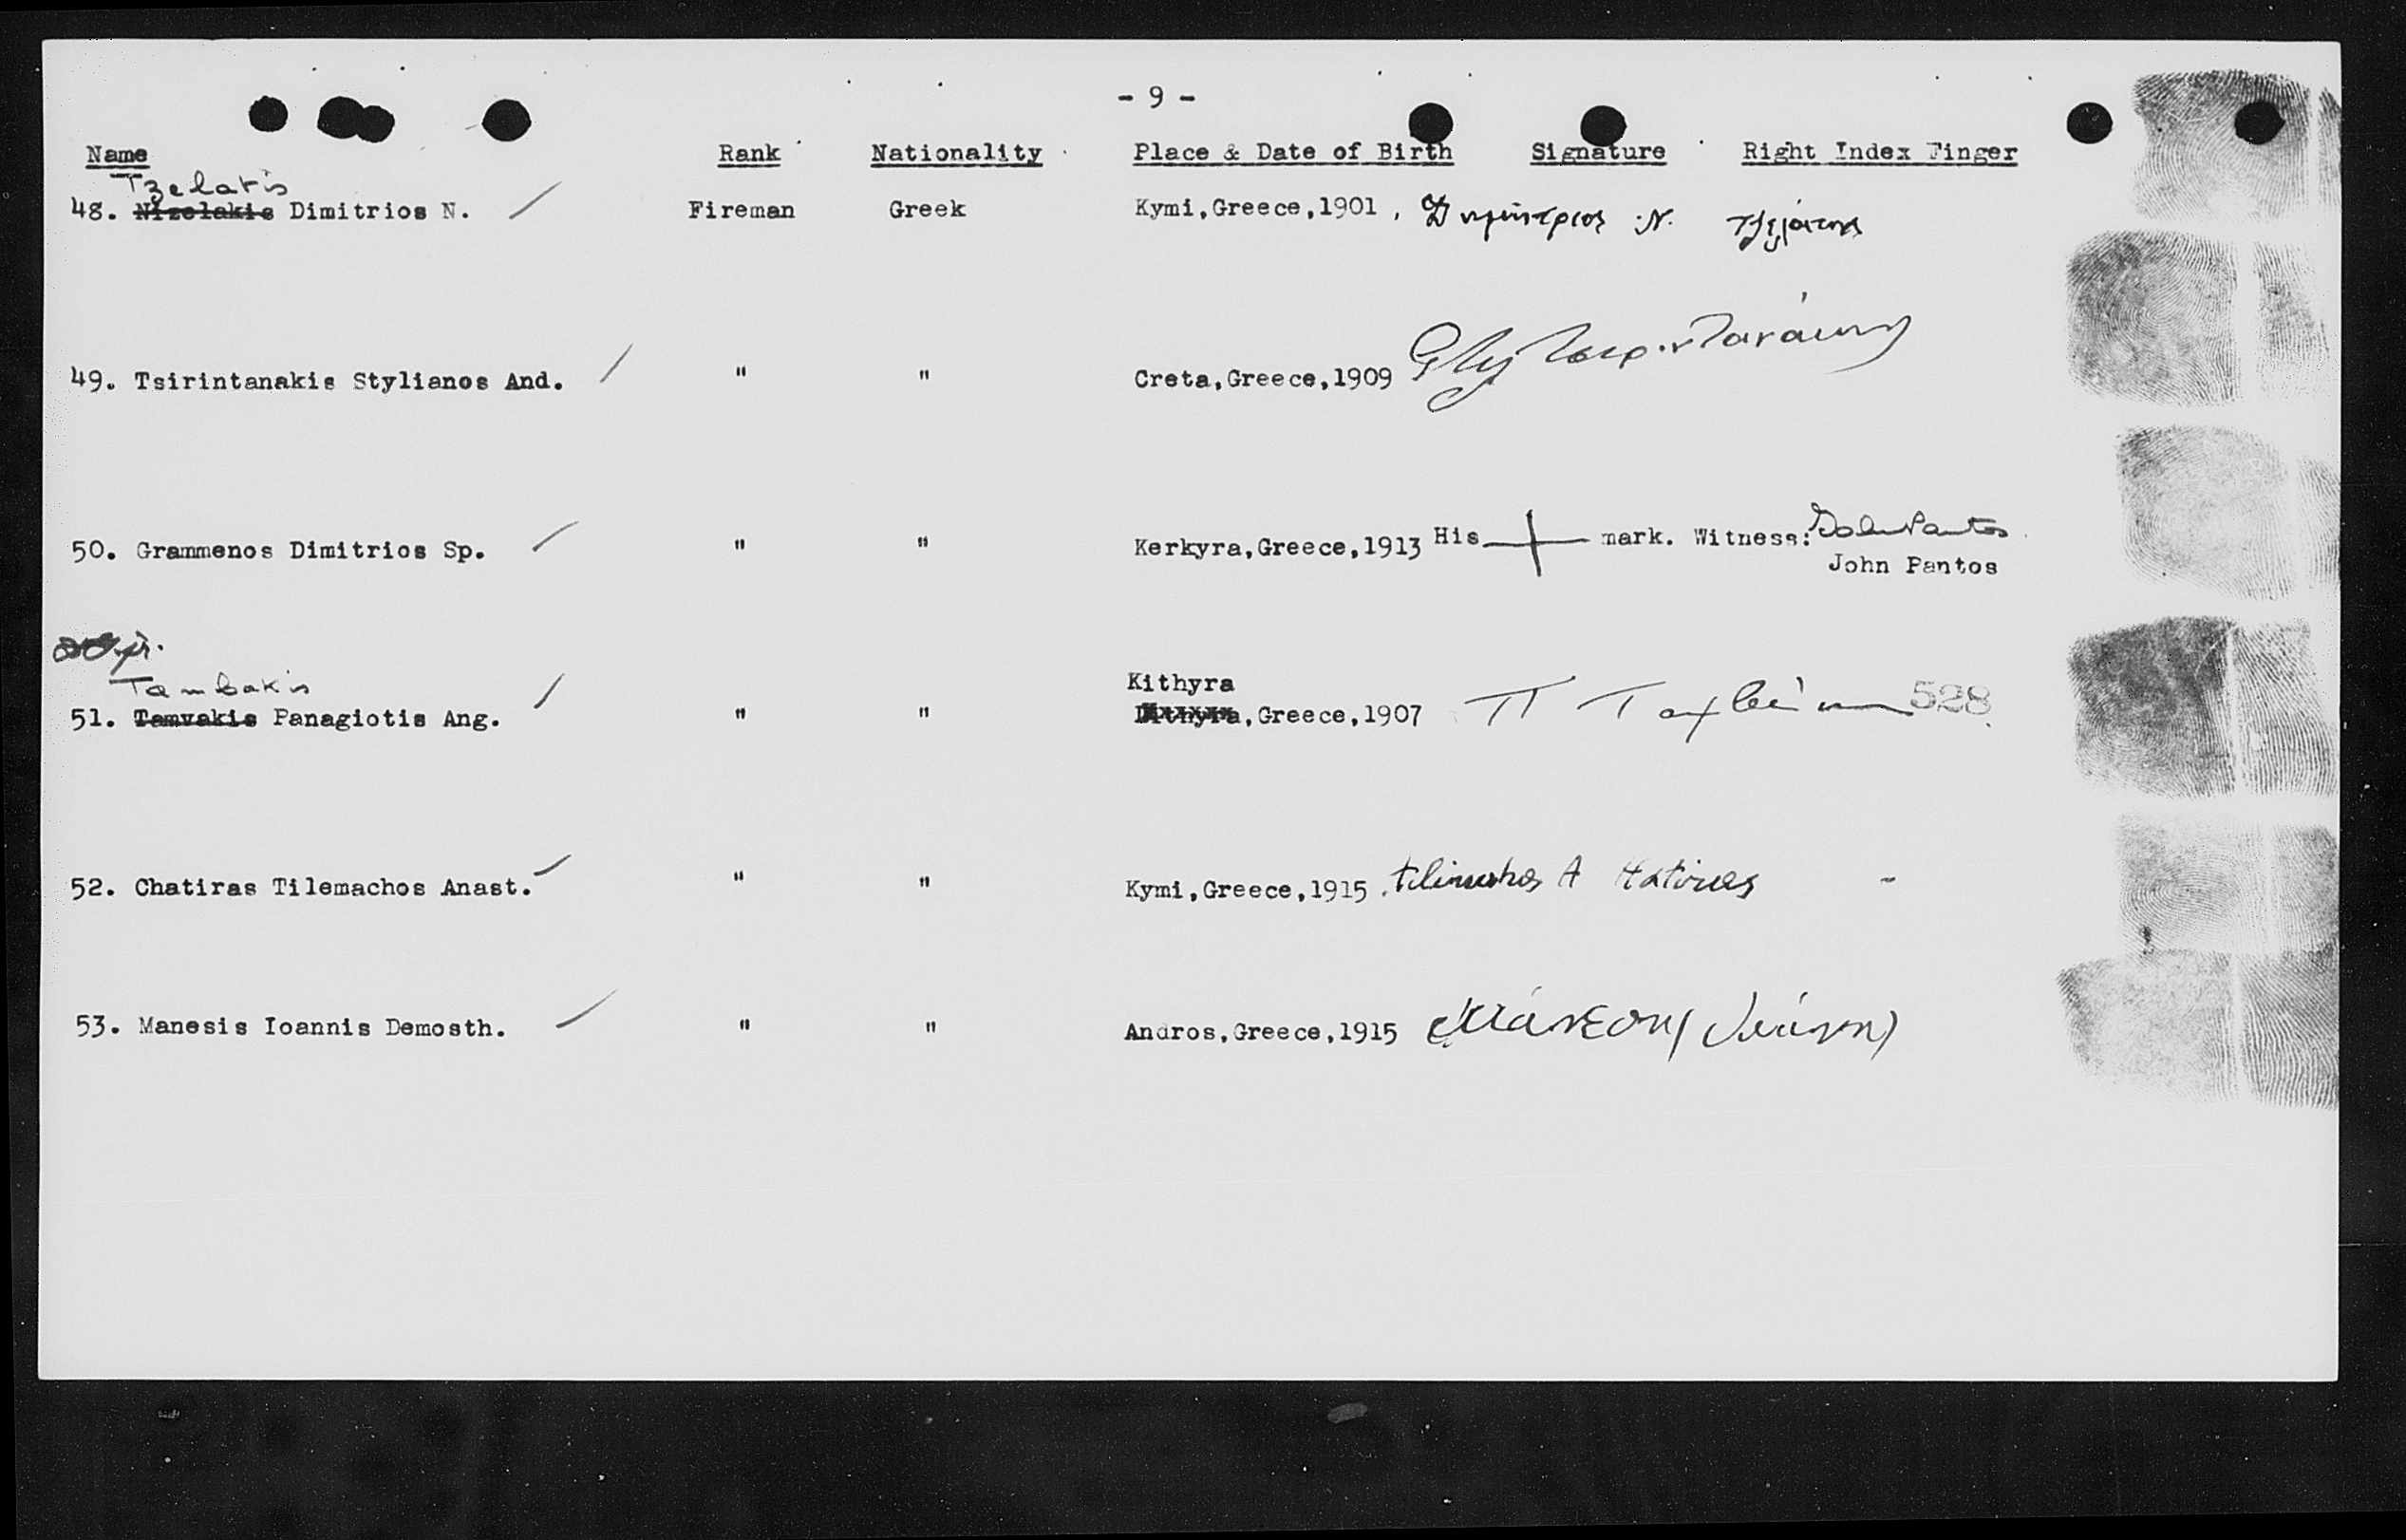 - 9 -
Name Rank Nationality Place & Date of Birth Signature Right Index Finger
Tzelatis
48. Nizelakis Dimitrios N. Fireman Greek Kymi,Greece,1901, Δημήτριος Ν. Τζελάτης
49. Tsirintanakis Stylianos And. " " Creta,Greece,1909
50. Grammenos Dimitrios Sp. " " Kerkyra,Greece,1913 His mark. Witness: John Pantos
John Pantos
Tambakis Kithyra
51. Tamvakis Panagiotis Ang. " " Dithyra,Greece,1907 Π 528
52. Chatiras Tilemachos Anast. " " Kymi,Greece,1915 Tilimahos A Hatiras -
53. Manesis Ioannis Demosth. " " Andros,Greece,1915 Μάνεσης Ιωάννης